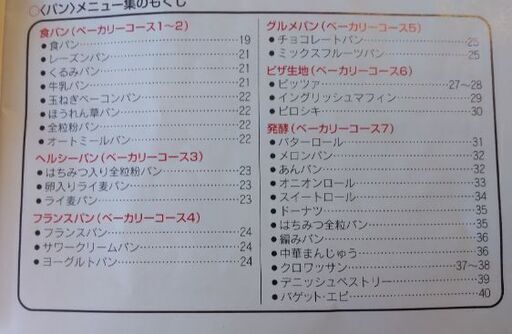 ○〈パン〉メニュー集のもくじ
食パン(ベーカリーコース1~2)
●食パン 19
●レーズンパン 21
●くるみパン 21
●牛乳パン 21
●玉ねぎベーコンパン 22
●ほうれん草パン 22
●全粒粉パン 22
●オートミールパン 22
ヘルシーパン(ベーカリーコース3)
●はちみつ入り全粒粉パン 23
●卵入りライ麦パン 23
●ライ麦パン 23
フランスパン(ベーカリーコース4)
●フランスパン 24
●サワークリームパン 24
●ヨーグルトパン 24
グルメパン(ベーカリーコース5)
●チョコレートパン 25
●ミックスフルーツパン 25
ピザ生地(ベーカリーコース6)
●ピッツァ 27~28
●イングリッシュマフィン 29
●ピロシキ 30
発酵(ベーカリーコース7)
●バターロール 31
●メロンパン 32
●あんパン 32
●オニオンロール 33
●スイートロール 34
●ドーナツ 35
●はちみつ全粒パン 35
●編みパン 36
●中華まんじゅう 36
●クロワッサン 37~38
●デニッシュペストリー 39
●バゲット・エピ 40